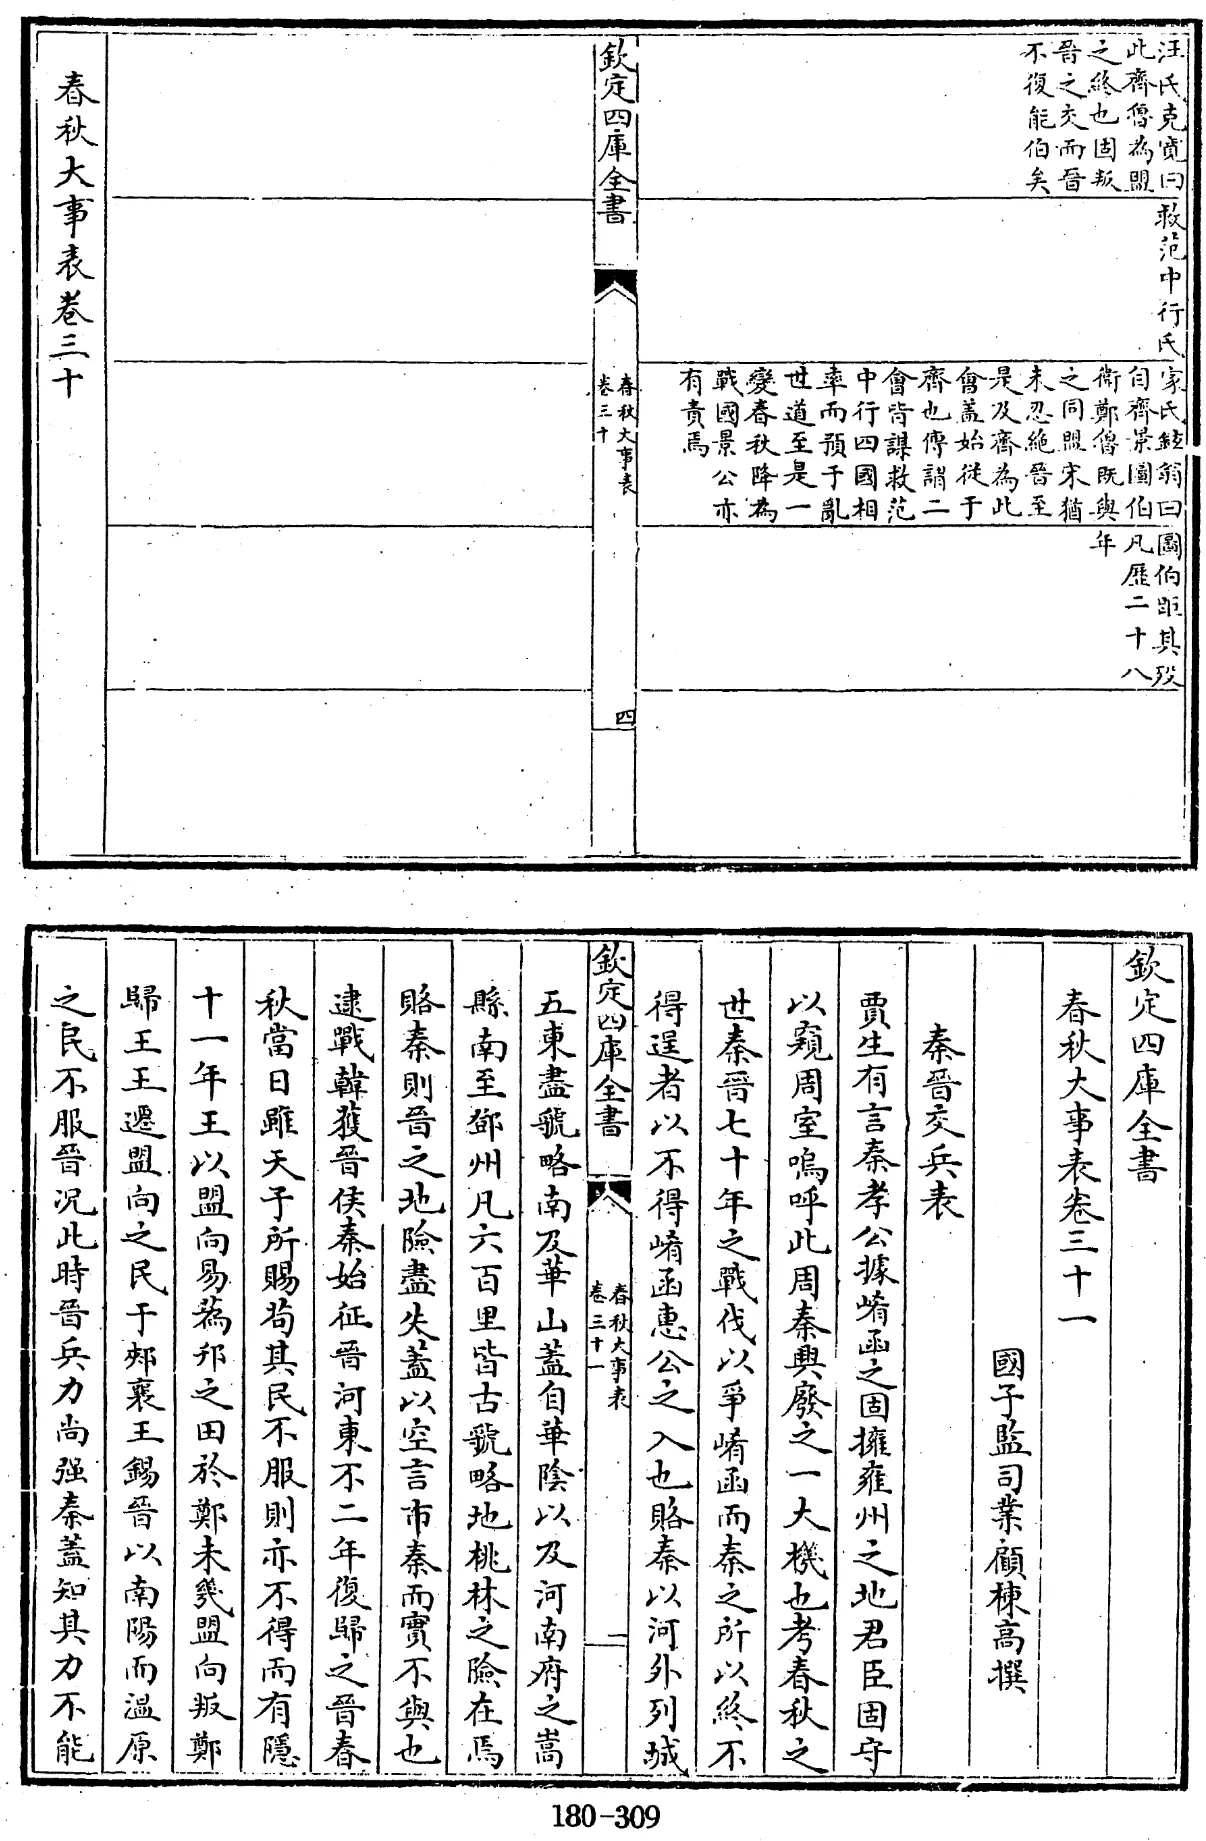 汪氏克寛曰
此齊魯為盟
之終也固叛
晉之交而晉
不復能伯矣
救范中行氏
家氏鉉翁曰
自齊景圖伯
衛鄭魯既與
之同盟宋猶
未忍絶晉至
是及齊為此
會蓋始從于
齊也傳謂二
會皆謀救范
中行四國相
率而預于亂
世道至是一
變春秋降為
戰國景公亦
有責焉
圖伯距其殁
凡歷二十八
年
欽定四庫全書
春秋大事表
卷三十
四
春秋大事表卷三十
欽定四庫全書
春秋大事表卷三十一
國子監司業顧棟高撰
秦晉交兵表
賈生有言秦孝公據崤函之固擁雍州之地君臣固守
以窺周室嗚呼此周秦興廢之一大機也考春秋之
世秦晉七十年之戰伐以爭崤函而秦之所以終不
得逞者以不得崤函惠公之入也賂秦以河外列城
欽定四庫全書
春秋大事表
卷三十一
一
五東盡虢略南及華山蓋自華陰以及河南府之嵩
縣南至鄧州凡六百里皆古虢略地桃林之險在焉
賂秦則晉之地險盡失蓋以空言市秦而實不與也
逮戰韓獲晉侯秦始征晉河東不二年復歸之晉春
秋當日雖天子所賜茍其民不服則亦不得而有隱
十一年王以盟向易蔿邘之田於鄭未幾盟向叛鄭
歸王王遷盟向之民于郟襄王錫晉以南陽而溫原
之民不服晉況此時晉兵力尚强秦蓋知其力不能
180-309